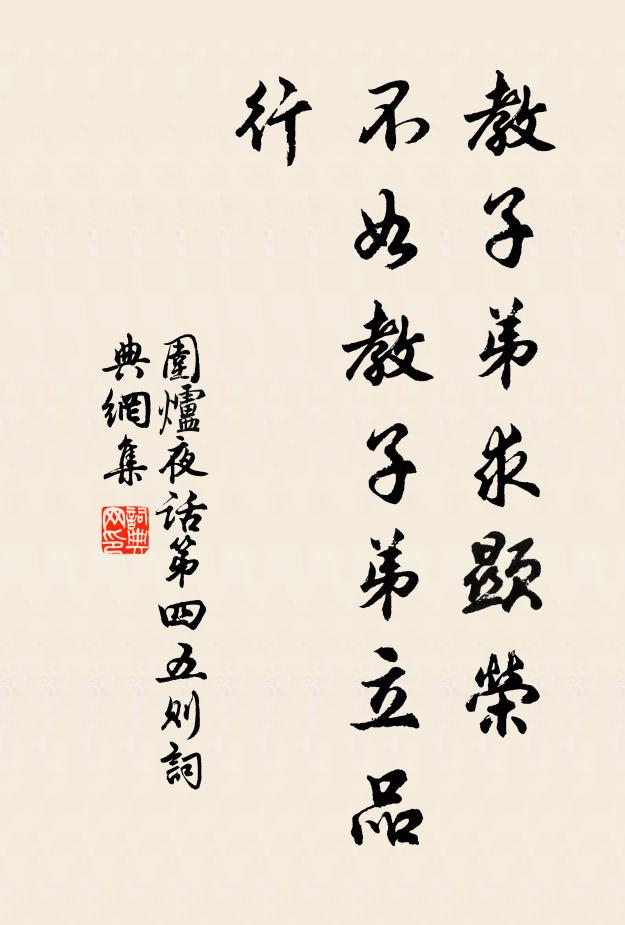 教子弟求顯榮
不如教子弟立品
行
圍爐夜话第四五则詞
典網集
詞典
网印